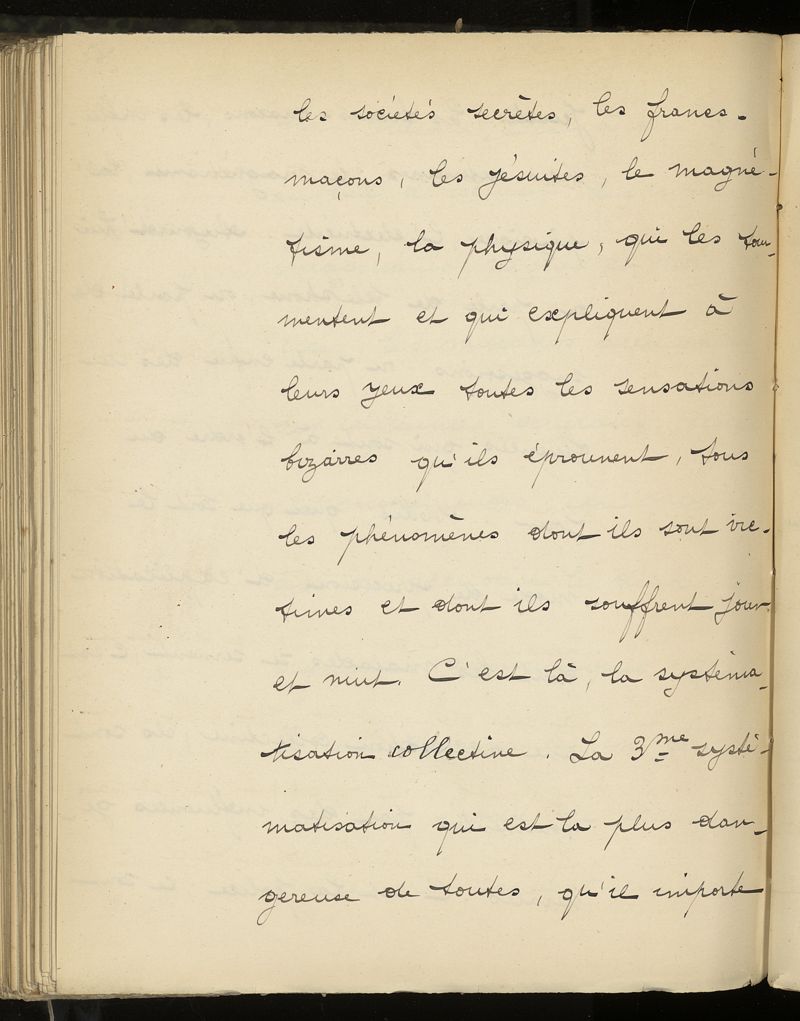 les sociétés secrètes, les francs-
maçons, les jésuites, le magné-
tisme, la physique, qui les tour-
mentent et qui expliquent à
leurs yeux toutes les sensations
bizarres qu'ils éprouvent, tous
les phénomènes dont ils sont vic-
times et dont ils souffrent jour
et nuit. C'est là, la systéma-
tisation collective. La 3me systé-
matisation qui est la plus dan-
gereuse de toutes, qu'il importe